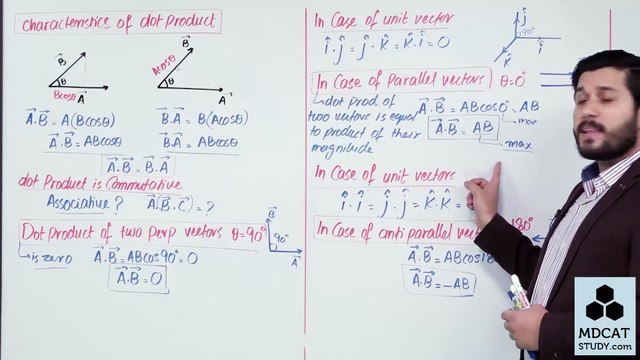 Characteristics of dot product
B
θ
Bcosθ
A
B
Acosθ
θ
A
A.B = A(Bcosθ)
A.B = ABcosθ
B.A = B(Acosθ)
B.A = ABcosθ
A.B = B.A
dot Product is Commutative
Associative? A(B.C) = ?
Dot product of two perp vectors θ=90°
is zero
A.B = ABcos90° = 0
A.B = 0
B
90°
A
In Case of unit vector
î.ĵ = ĵ.k̂ = k̂.î = 0
ĵ
90°
î
k̂
In Case of Parallel vectors θ=0°
dot prod of
two vectors is equal
to product of their
magnitude
A.B = ABcos0° = AB
max
A.B = AB
max
In Case of unit vectors
î.î = ĵ.ĵ = k̂.k̂ =
In Case of anti parallel vec 180°
A.B = ABcos18
A.B = -AB
MDCAT
STUDY.com